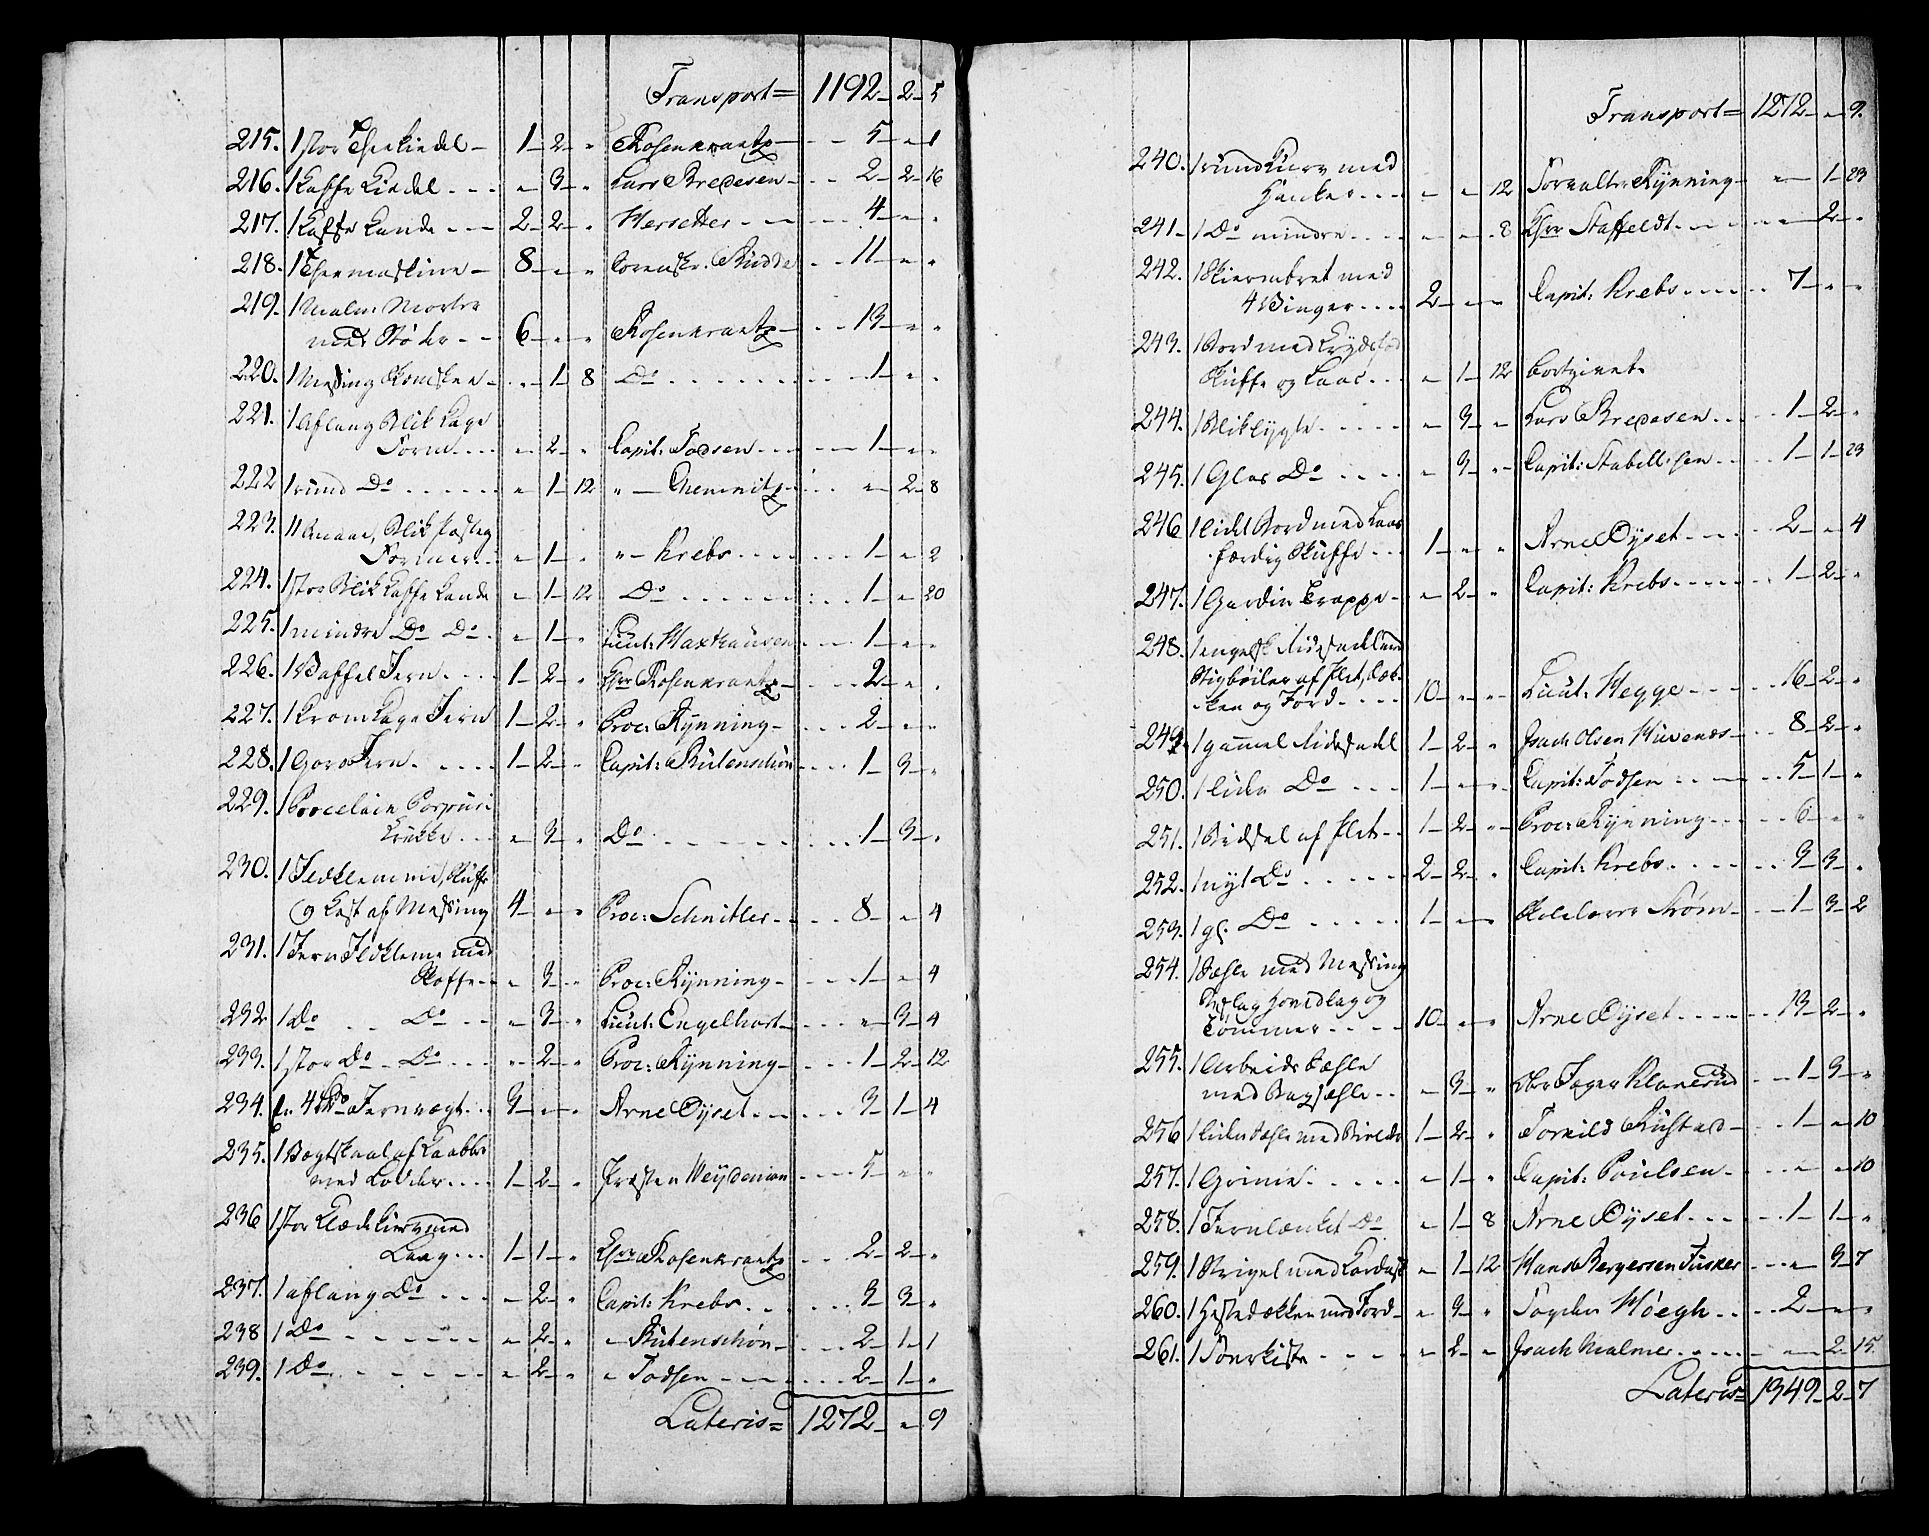 Transport = 1192 - 2 - 5
215. 1 stor Theekiedel - 1 - 2 - " Rosenkrantz - 5 - " 1
216. 1 Kaffe Kiedel - " - 3 - " Lars Bredesen - 2 - 2 - 16
217. 1 Kaffe Kande - 2 - 2 - " Hersetter - 4 - " "
218. 1 Theemaskine - 8 - " - " Sorenskr. Budde 11 - " "
219. 1 Malm Morter
med Støder - 6 - " - " Rosenkrantz - 13 - " "
220. 1 Messing Skomskee - " - 1 - 8 Do 1 - " "
221. 1 Aflang Blik Kage
Form " - 2 - " Capit: Todsen 1 - " "
222 1 rund Do " - 1 - 12 " - Chemnitz " - 2 - 8
223. 11 Blik Posteg
Former " - 1 - " " - Krebs 1 - " 2
224. 1 stor Blik Kaffe Kande " - 1 - 12 Do 1 - " 20
225. 1 mindre Do Do " - 1 - " Lieut: Haxthausen 1 - " "
226. 1 Vaffel Jern 1 - 2 - " Hr Rosenkrantz - 2 - " "
227. 1 Kromkage Jern 1 - 2 - " Proc: Rynning - 2 - " "
228. 1 Goro Jern 1 - 2 - " Capit: Bülenschøn 1 - 3 - "
229. 1 Porcelain Potpuri
Krukke " - 3 - " Do 1 - 3 - "
230. 1 Ildklemme, Skuffe
og Kost af Messing 4 - " - " Proc: Schnitler 8 - " 4
231. 1 Jern Ildklemme med
Skuffe " - 3 - " Proc: Rynning 1 - " 4
232 1 Do Do " - 3 - " Lieut: Engelhart " - 3 - 4
233. 1 stor Do Do " - 2 - " Proc: Rynning 1 - 2 - 12
234. en Jernvegt 3 - " - " Arne Dyset 3 - 1 - 4
235. 1 Vægtskaal af Kaabber
med Lodder 1 - 2 - " Presten Heyderman 5 - " "
236 1 stor Klædekurv med
Laag 1 - 1 - " Hr Rosenkrantz 2 - 2 - "
237. 1 aflang Do " - 2 - " Capit: Krebs 3 - 3 - "
238 1 Do " - 2 - " " Bülenschøn 2 - 1 - 1
239. 1 Do " - 2 - " " Todsen 2 - 1 - "
Lateris = 1272 - " - 9
Transport = 1272 - " - 9.
240. 1 rund Kurv med
Hanker " - " 12 Forvalter Rynning - " - 1 - 23
241 - 1 Do mindre " - " 8 Hr Staffeldt " - 2 - "
242. 1 Skiermbret med
4 Vinger 2 - " - " Capit: Krebs 7 - " "
243. 1 Bord med Krydsfod
Skuffe og Laas " - 1 - 12 bortgivet.
244. 1 Bliklygte " - 3 - " Lars Bredesen 1 - 2 - "
245. 1 Glas Do " - 3 - " Capit: Stabell 1 - 1 - 23
246 1 lidet Bord med Laas
færdig Skuffe 1 - " " Arne Dyset 2 - " 4
247. 1 Gardin Trappe - " - 2 - " Capit: Krebs 1 - 2 - "
248. 1 engelsk Ridesadel med
Stigbøiler af Plet, Dæk-
ken og Jord 10 - " - " Lieut: Hegge 16 - 2 - "
249. 1 gammel Ridesadel 1 - 2 - " Isach Olsen Huvenæs 8 - 2 - "
250. 1 liden Do 1 - " - " Capit: Todsen 5 - 1 - "
251. 1 Bidsel af Plet 1 - 2 - " Proc: Rynning 6 - " "
252. 1 nyt Do 2 - 2 - " Capit: Krebs 3 - 3 - "
253. 1 gl. Do 1 - " Strøm 1 - 3 - 2
254. 1 Sæhle med Messing
Beslag Hovedlag og
Tømmer 10 - " " Arne Dyset 13 - 2 - "
255. 1 Arbeids Sæhle
med Bagsæhle " - 3 - " Klanerud 1 - 3 - "
256 1 liden Sæhle med 1 - 2 - " Torkild Rustad - 1 - " 10
257. 1 Grime " - 1 - " Capit: Poulsen - " - " 10
258. 1 Jernlænket Do " - 1 - 8 Arne Dyset 1 - 1 - "
259. 1 Strigel med Kardust " - 1 - 12 Hans Bergersen Tusker " - 3 - 7
260. 1 Hestedækken med Jord - " - 3 - " Fogden Høegh 2 - " "
261. 1 Tønekiste " - 2 - " Isach Malmer " - 2 - 15
Lateris = 1349 - 2 - 7